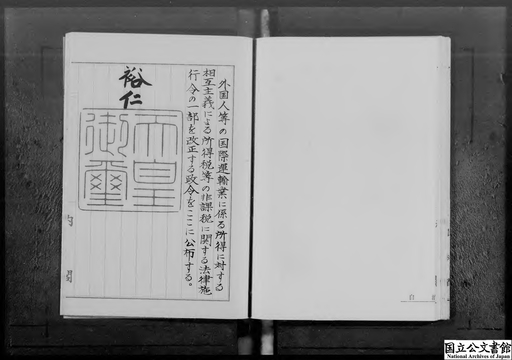 外国人等の国際運輸業に係る所得に対する
相互主義による所得税等の非課税に関する法律施
行令の一部を改正する政令をここに公布する。
裕仁
天皇
御璽
国立公文書館
National Archives of Japan